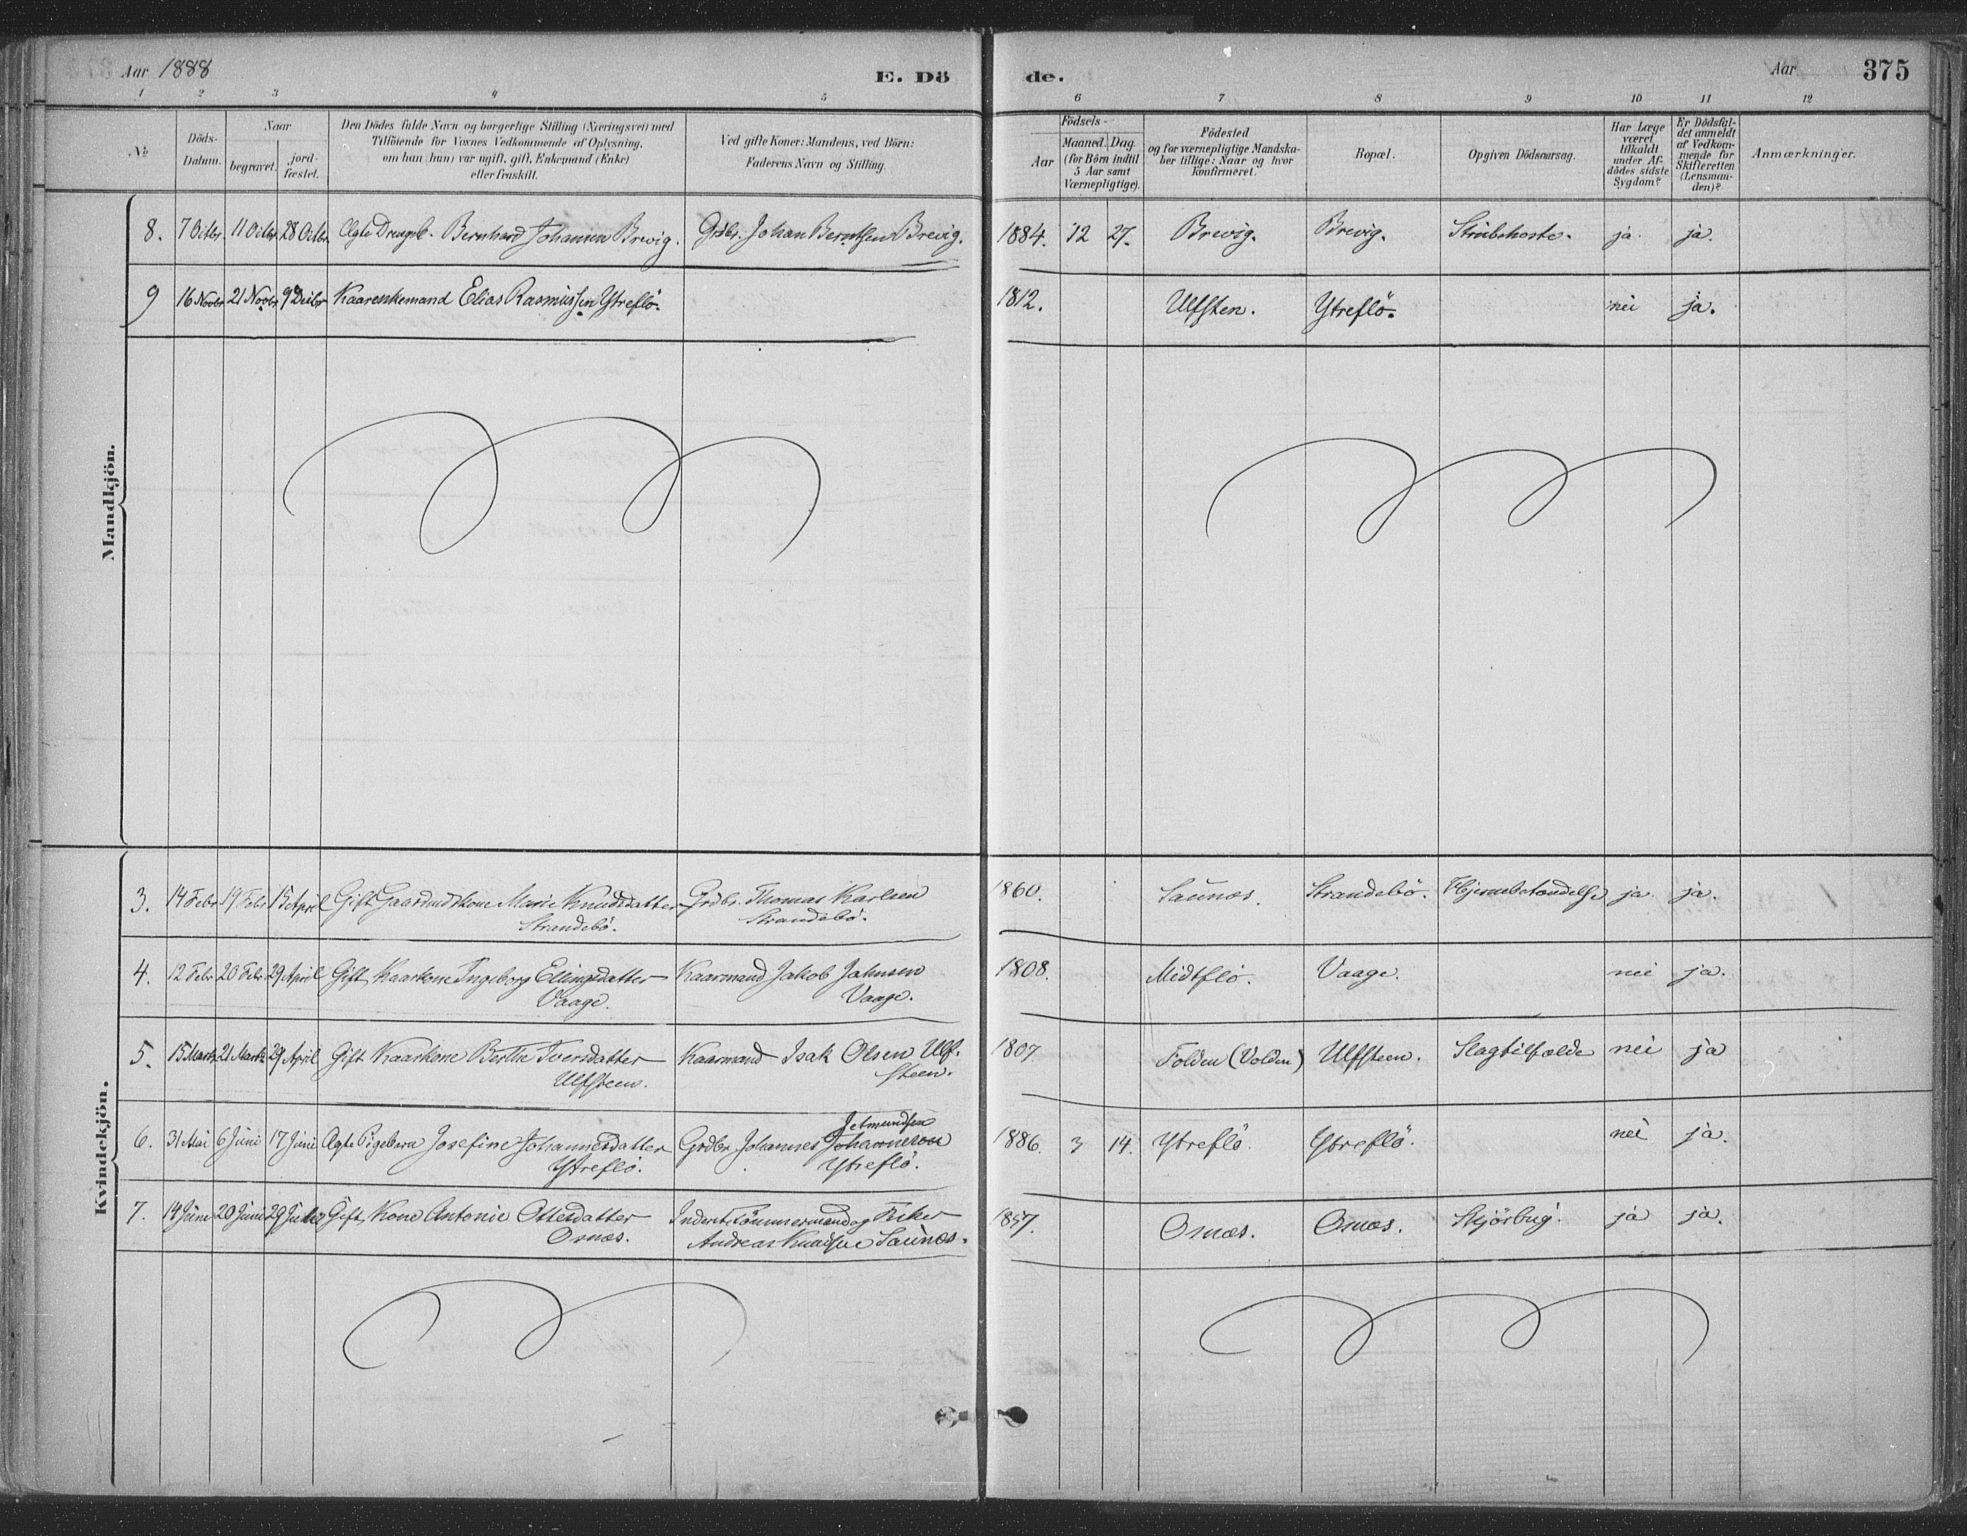 Aar 1888
E. Dö
de.
Aar
375
1 2 3 4 5 6 7 8 9 10 11 12
№
Döds-
Datum.
Naar
begravet.
jord-
fæstet.
Den Dödes fulde Navn og borgerlige Stilling (Næringsvei) med
Tilföiende for Voxnes Vedkommende af Oplysning,
om han (hun) var ugift, gift, Enkemand (Enke)
eller fraskilt.
Ved gifte Koner: Mandens, ved Börn:
Faderens Navn og Stilling.
Födsels-
Aar
Maaned. Dag
(for Börn indtil
5 Aar samt
Værnepligtige).
Födested
og for værnepligtige Mandska-
ber tillige: Naar og hvor
konfirmeret.
Bopæl.
Opgiven Dödsaarsag.
Har Læge
været
tilkaldt
under Af-
dödes sidste
Sygdom?
Er Dödsfal-
det anmeldt
af Vedkom-
mende for
Skifteretten
(Lensman-
den)?
Anmærkninger.
Mandkjön.
8. 7 Octbr. 11 Octbr. 28 Octbr. Ægte Drengeb. Bernhard Johansen Brevig. Grdbr. Johan Berntsen Brevig. 1884. 12 27. Brevig. Brevig. Strubehoste. ja. ja.
9 16 Novbr 21 Novbr 9 Decbr Kaarenkemand Elias Rasmussen Ytreflö. 1812. Ulfsten. Ytreflö. nei ja.
Kvindekjön.
3. 14 Febr 19 Febr 15 April Gift Gaardmdskone Marie Knudsdatter Grdbr. Thomas Karlsen 1860. Saunæs. Strandebö. Hjernebetændelse ja. ja.
Strandebö. Strandebö.
4. 12 Febr 20 Febr. 29 April Gift Kaarkone Ingeborg Ellingsdatter Kaarmand Jakob Jahnsen 1808. Midtflö. Vaage. nei ja.
Vaage. Vaage.
5. 15 Marts 21 Marts 29 April Gift Kaarkone Berthe Iversdatter Kaarmand Isak Olsen Ulf- 1807. Folden (Volden) Ulfsteen. Slagtilfælde nei ja
Ulfsteen. steen.
Jetmundsen
6. 31 Mai 6 Juni 17 Juni Ægte Pigebarn Josefine Johannesdatter Grdbr. Johannes Johannesen 1886. 3 14. Ytreflö. Ytreflö. nei ja.
Ytreflö. Ytreflö.
7. 14 Juni 20 Juni 29 Juli Gift Kone Antonie Ottesdatter Inderst, Tömmermand og Fisker 1857. Osnæs. Osnæs. Skjörbug. ja ja.
Osnæs. Andreas Knudsen Saunæs.